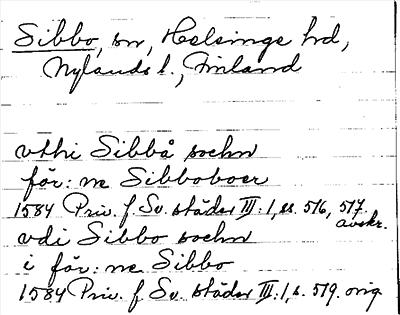 Sibbo, sn, Helsinge hd,
Nylands l., Finland
vthi Sibbå sochn
för: ne Sibboboer
1584 Priv. f. Sv. städer III:1, ss. 576, 577
avskr.
vdi Sibbo sochn
i för: ne Sibbo
1584 Priv. f. Sv. städer III:1, s. 579. orig